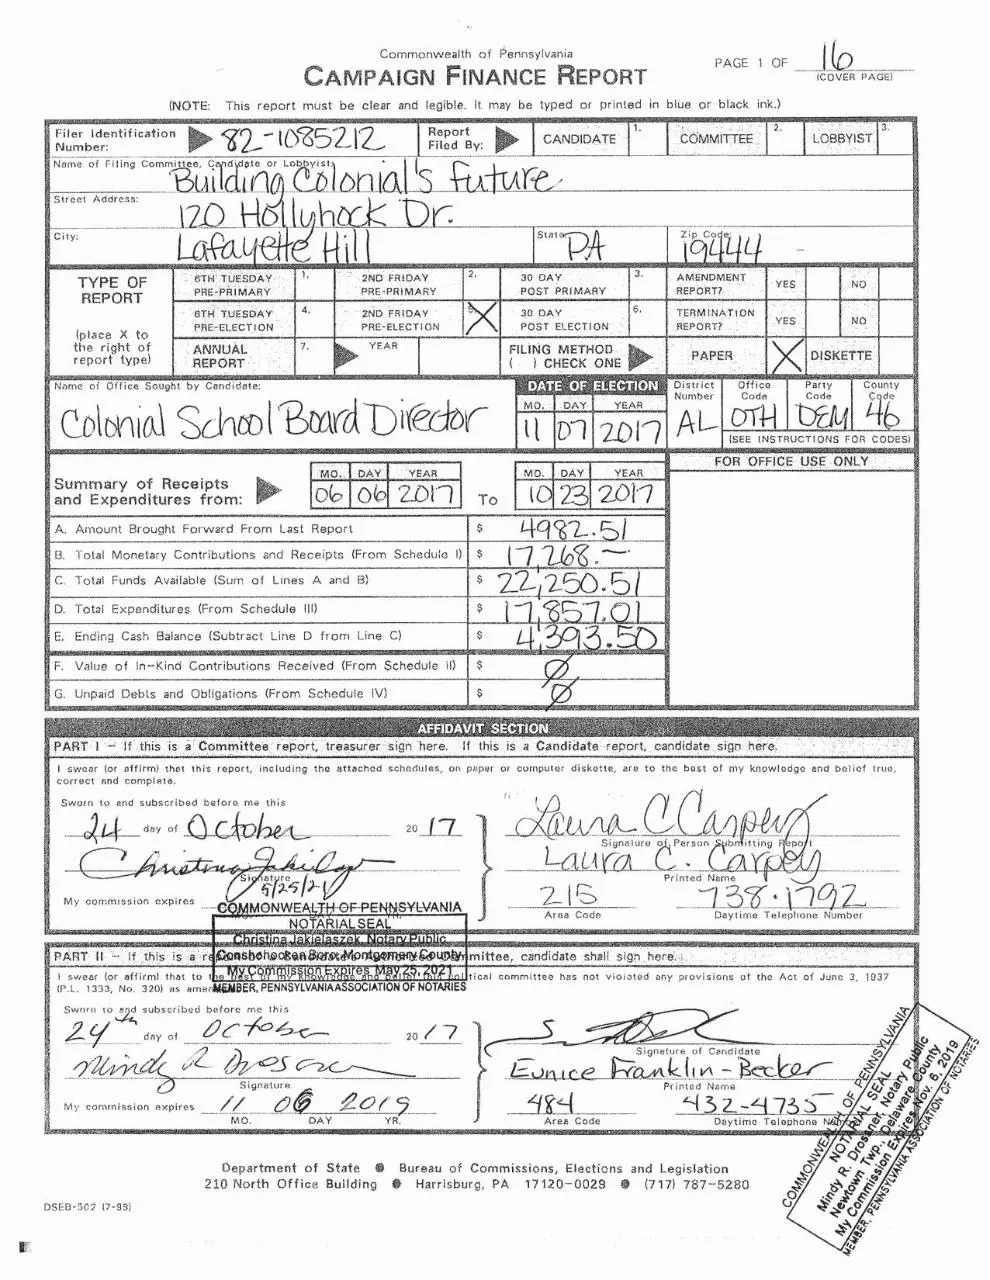 Commonwealth of Pennsylvania
CAMPAIGN FINANCE REPORT
PAGE 1 OF 16
(COVER PAGE)
(NOTE: This report must be clear and legible. It may be typed or printed in blue or black ink.)
Filer Identification Number: 82-1085212 Report Filed By: CANDIDATE 1. COMMITTEE 2. LOBBYIST 3.
Name of Filing Committee, Candidate or Lobbyist:
Building Colonial's Future
Street Address:
120 Hollyhock Dr.
City: Lafayette Hill State: PA Zip Code: 19444 -
TYPE OF REPORT
(place X to the right of report type)
6TH TUESDAY PRE-PRIMARY 1. 2ND FRIDAY PRE-PRIMARY 2. 30 DAY POST PRIMARY 3. AMENDMENT REPORT? YES NO
6TH TUESDAY PRE-ELECTION 4. 2ND FRIDAY PRE-ELECTION 5. X 30 DAY POST ELECTION 6. TERMINATION REPORT? YES NO
ANNUAL REPORT 7. YEAR FILING METHOD ( ) CHECK ONE PAPER X DISKETTE
Name of Office Sought by Candidate:
Colonial School Board Director
DATE OF ELECTION
MO. DAY YEAR
11 07 2017
District Number AL
Office Code OTH
Party Code DEM
County Code 46
(SEE INSTRUCTIONS FOR CODES)
Summary of Receipts and Expenditures from:
MO. DAY YEAR
06 06 2017
To
MO. DAY YEAR
10 23 2017
FOR OFFICE USE ONLY
A. Amount Brought Forward From Last Report $ 4982.51
B. Total Monetary Contributions and Receipts (From Schedule I) $ 17,268.—
C. Total Funds Available (Sum of Lines A and B) $ 22,250.51
D. Total Expenditures (From Schedule III) $ 17,857.01
E. Ending Cash Balance (Subtract Line D from Line C) $ 4,393.50
F. Value of In-Kind Contributions Received (From Schedule II) $ Ø
G. Unpaid Debts and Obligations (From Schedule IV) $ Ø
AFFIDAVIT SECTION
PART I – If this is a Committee report, treasurer sign here. If this is a Candidate report, candidate sign here.
I swear (or affirm) that this report, including the attached schedules, on paper or computer diskette, are to the best of my knowledge and belief true,
correct and complete.
Sworn to and subscribed before me this
24 day of October 20 17
Laura C Carpey
Signature of Person Submitting Report
Laura C. Carpey
Printed Name
Christina Jakielaszek
Signature
5/25/21
My commission expires
215 738-1792
Area Code Daytime Telephone Number
COMMONWEALTH OF PENNSYLVANIA
NOTARIAL SEAL
Christina Jakielaszek, Notary Public
Conshohocken Boro, Montgomery County
My Commission Expires May 25, 2021
MEMBER, PENNSYLVANIA ASSOCIATION OF NOTARIES
PART II – If this is a report of a Candidate's Authorized Committee, candidate shall sign here.
I swear (or affirm) that to the best of my knowledge and belief this political committee has not violated any provisions of the Act of June 3, 1937
(P.L. 1333, No. 320) as amended.
Sworn to and subscribed before me this
24th day of October 20 17
Signature of Candidate
Mindy R Drossner
Signature
Eunice Franklin-Becker
Printed Name
My commission expires 11 06 2019
MO. DAY YR.
484 432-4735
Area Code Daytime Telephone Number
COMMONWEALTH OF PENNSYLVANIA
NOTARIAL SEAL
Mindy R. Drossner, Notary Public
Newtown Twp., Delaware County
My Commission Expires Nov. 6, 2019
MEMBER, PENNSYLVANIA ASSOCIATION OF NOTARIES
Department of State ● Bureau of Commissions, Elections and Legislation
210 North Office Building ● Harrisburg, PA 17120-0029 ● (717) 787-5280
DSEB-502 (7-99)